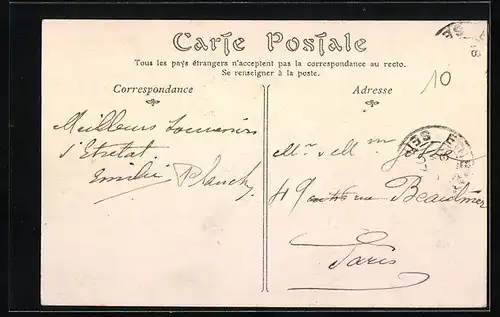 Carte Postale
Tous les pays étrangers n'acceptent pas la correspondance au recto.
Se renseigner à la poste.
Correspondance
Adresse
10
Meilleurs souvenirs
d'Etretat.
Emilie Planch
Mr & Mm
49 rue Beautreillis
Paris